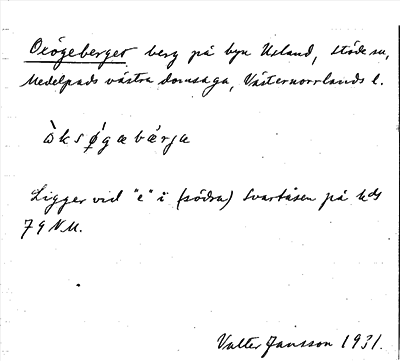 Oxögeberget berg på byn Usland, Stöde sn,
Medelpads västra domsaga, Västernorrlands l.
ò k s ǿ g æ b æ̀ r j æ
Ligger vid "e" i (södra) Svartåsen på kds
79 NV.
Valter Jansson 1931.